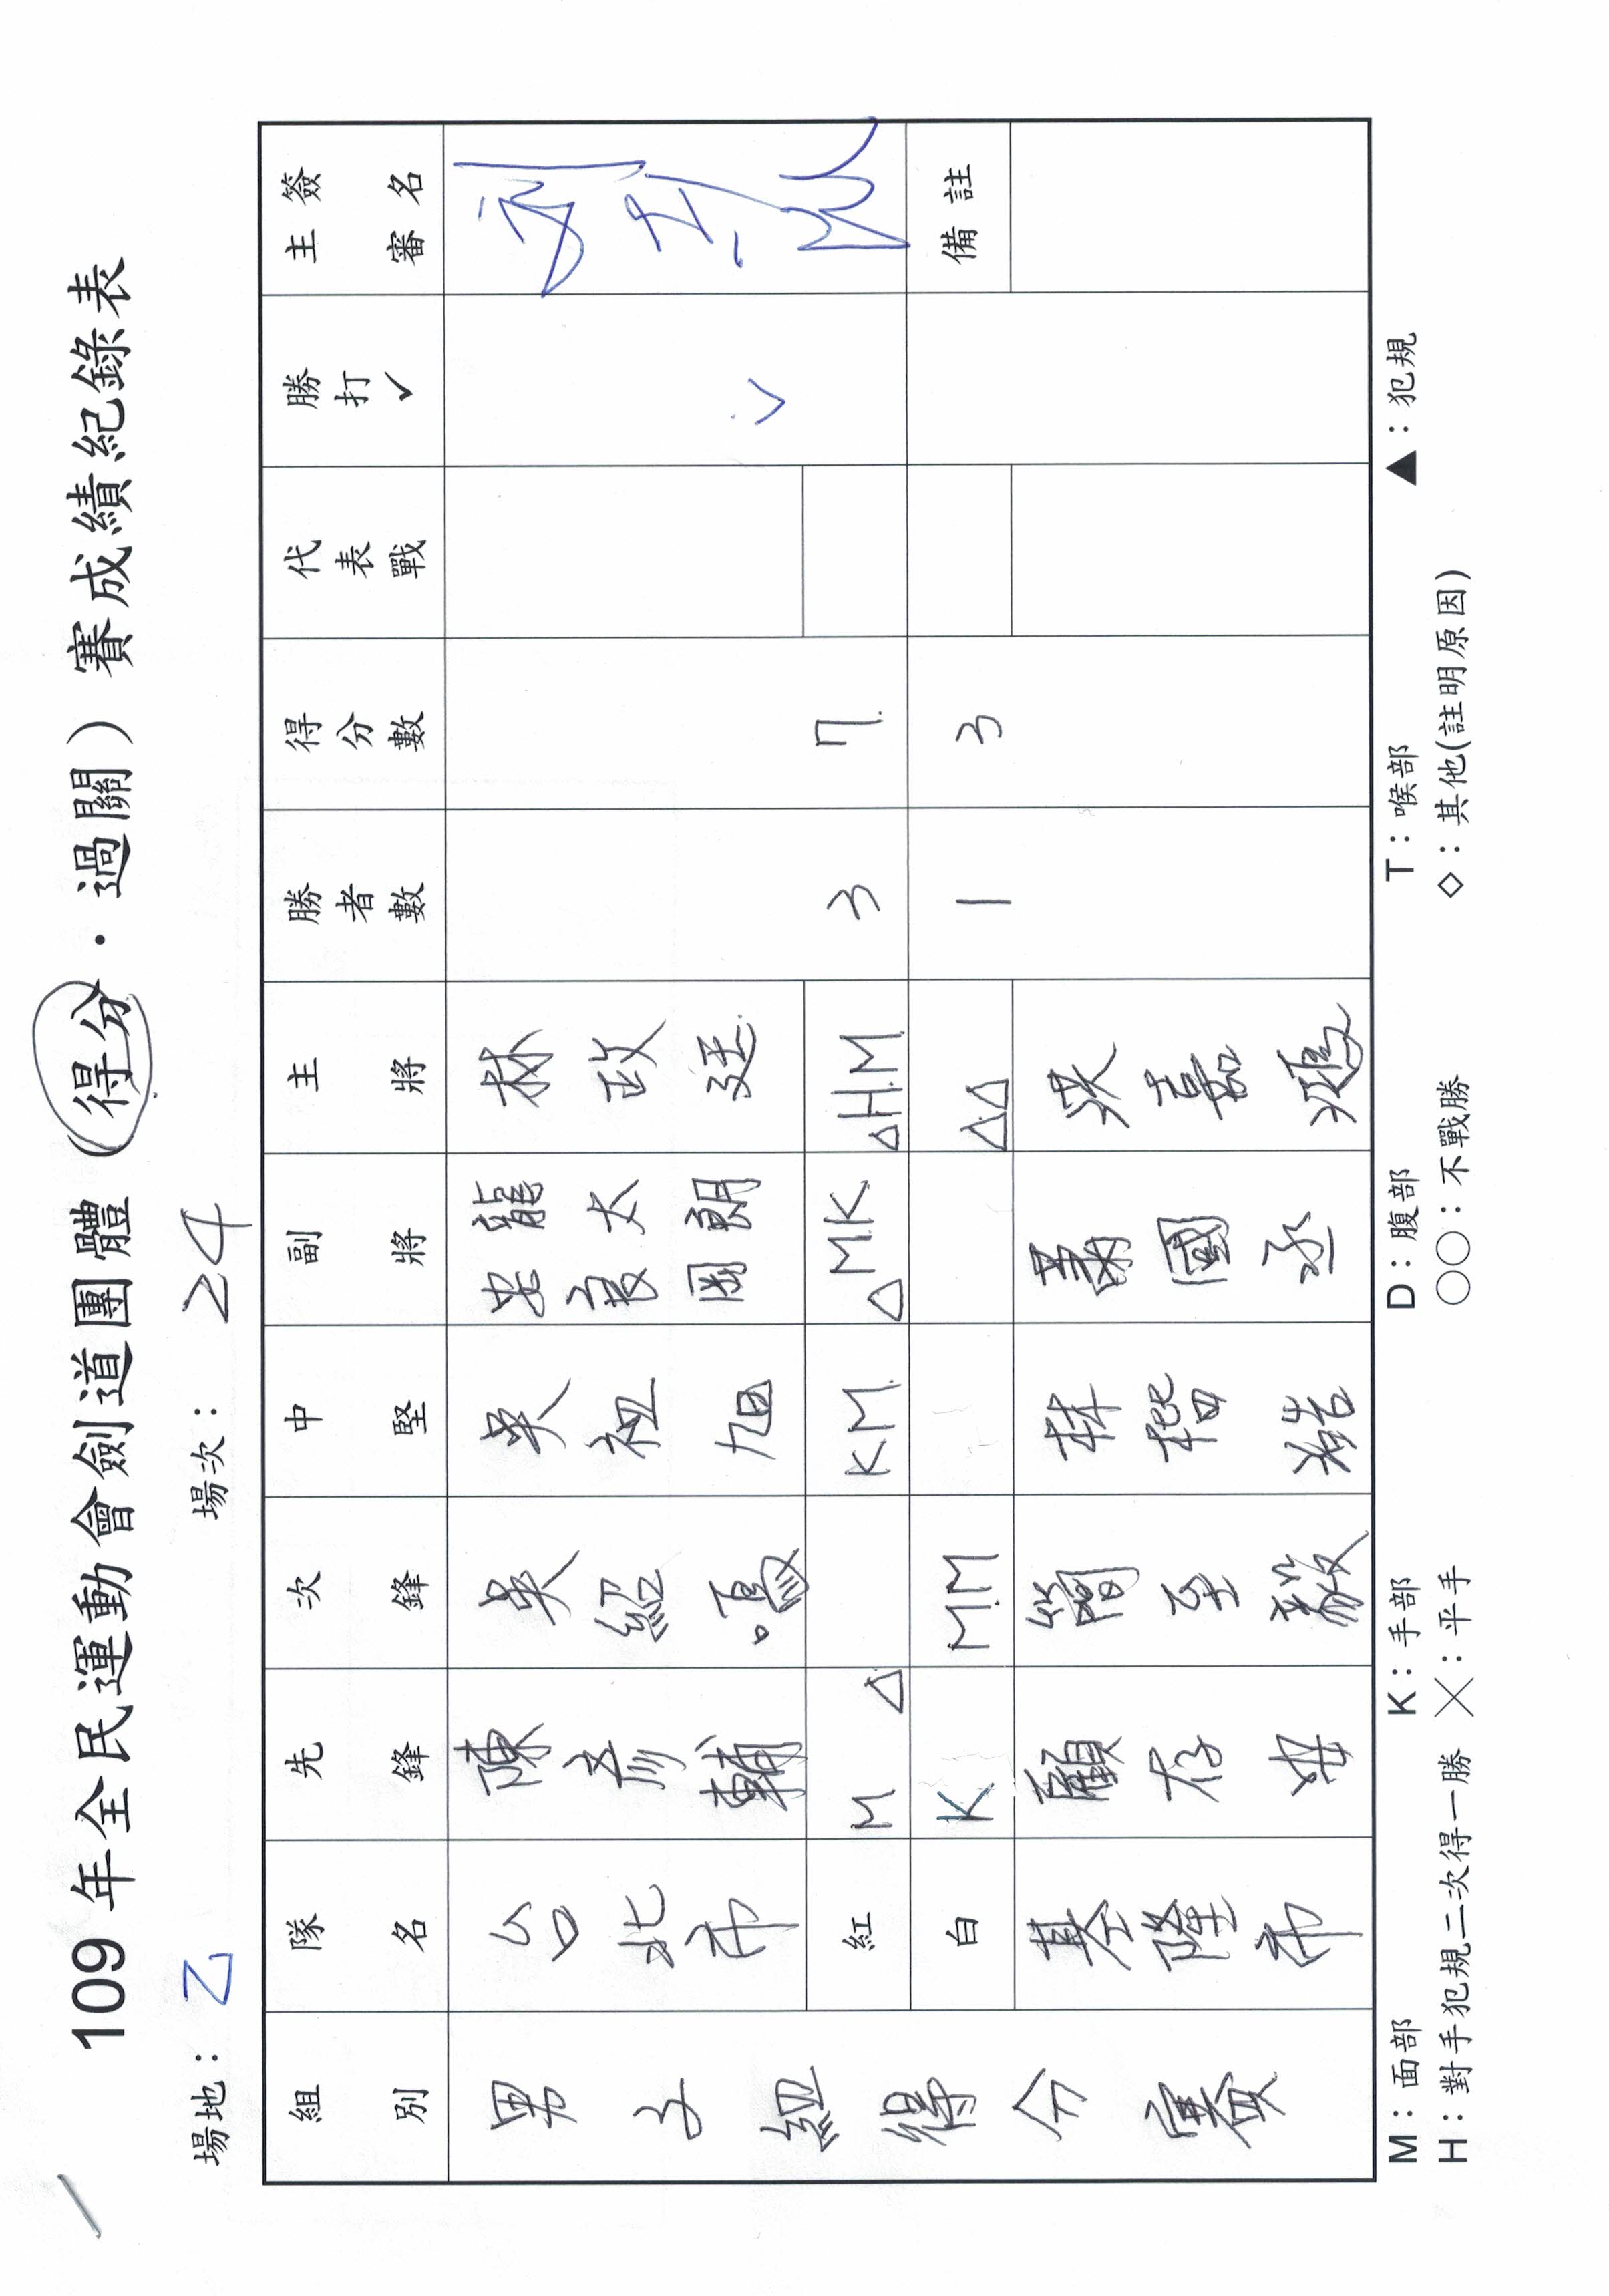 109 年全民運動會劍道團體（得分．過關）賽成績紀錄表
場地：乙 場次：24
組別 隊名 先鋒 次鋒 中堅 副將 主將 勝者數 得分數 代表戰 勝打✓ 主審簽名
男子組得分賽 台北市 陳彥輔 吳紹 吳祖旭 安龍 太朗 林政廷
紅 M △ KM △MK △HM 3 7 ✓
白 K MM △△ 1 3 備註
基隆市 顧存 簡至毅 林楷浩 蕭國丞 嘉
M：面部 K：手部 D：腹部 T：喉部 ▲：犯規
H：對手犯規二次得一勝 ╳：平手 ○○：不戰勝 ◇：其他(註明原因)